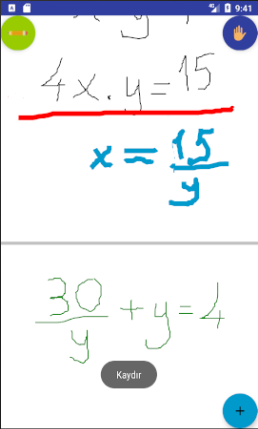 9:41
4x.y=15
x=15/y
30/y+y=4
Kaydır
+